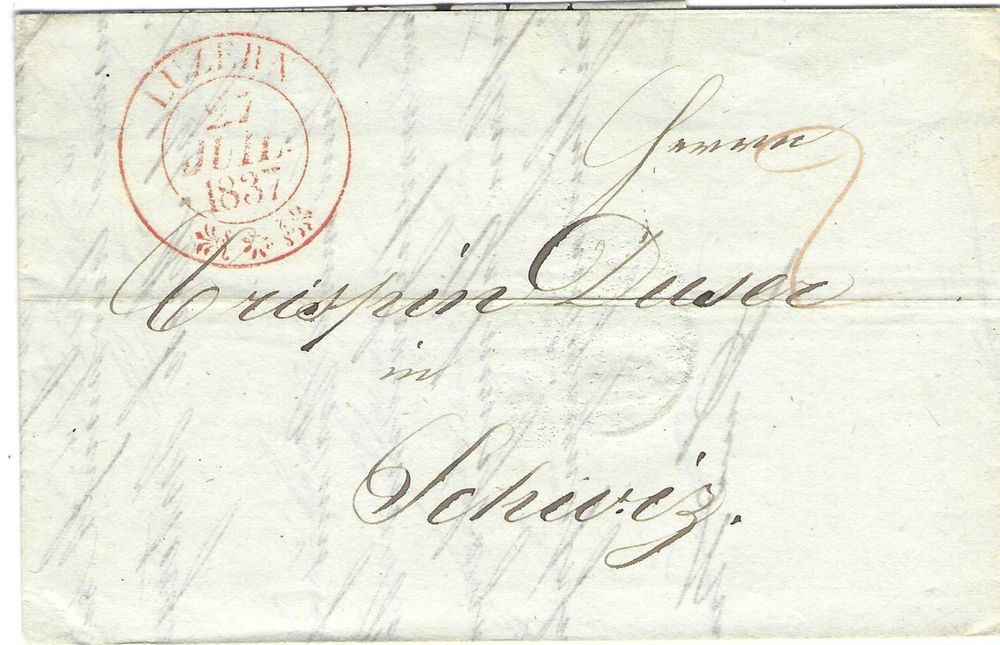 LUZERN
27
JUIL.
1837
Herrn
Crispin Duser
in
Schwiz.